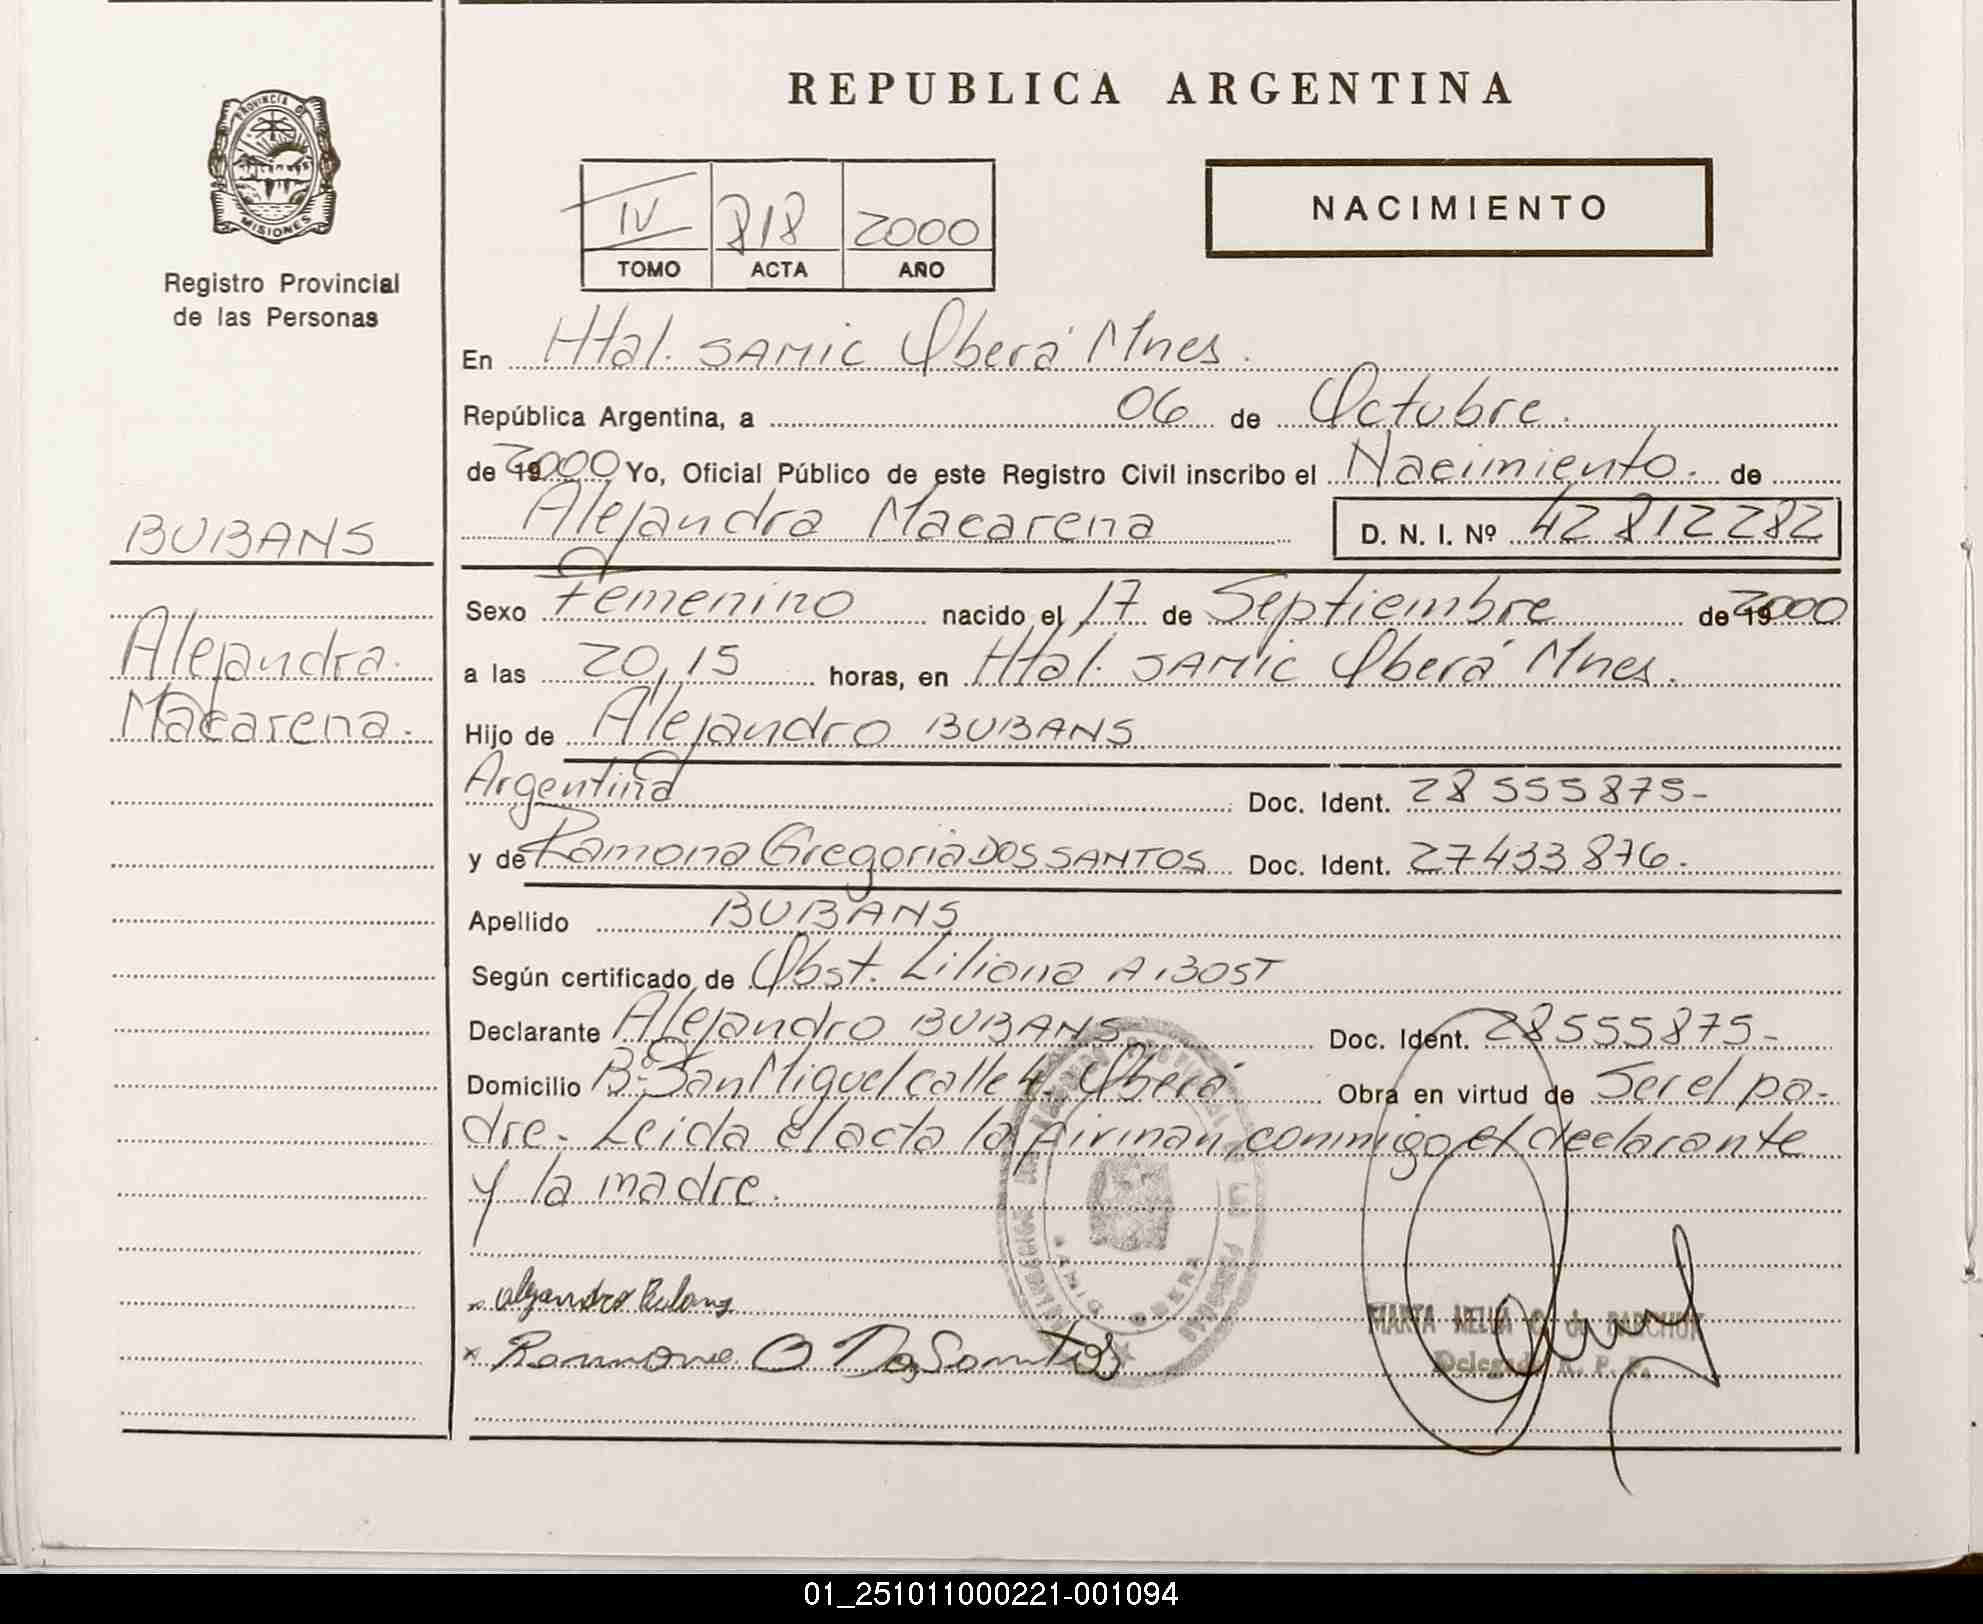 REPUBLICA ARGENTINA
PROVINCIA DE
MISIONES
Registro Provincial
de las Personas
IV 818 2000
TOMO ACTA AÑO
NACIMIENTO
En Htal. SAMIC Oberá Mnes.
República Argentina, a 06 de Octubre.
de 192000 Yo, Oficial Público de este Registro Civil inscribo el Nacimiento. de
Alejandra Macarena D. N. I. Nº 42812282
BUBANS
Alejandra.
Macarena.
Sexo Femenino nacido el 17 de Septiembre de 192000
a las 20,15 horas, en Htal. SAMIC Oberá Mnes.
Hijo de Alejandro BUBANS
Argentina Doc. Ident. 28 555 875-
y de Ramona Gregoria DOS SANTOS Doc. Ident. 27433876.
Apellido BUBANS
Según certificado de Obst. Liliana A. BOST
Declarante Alejandro BUBANS Doc. Ident. 28555875-
Domicilio Bº San Miguel calle 4. Oberá Obra en virtud de Ser el pa-
dre. Leida el acta la firman conmigo el declarante
y la madre.
x Alejandro Bubans
x Ramona G Dos Santos
MARTA NELIDA de
Delegada R. P. P.
01_251011000221-001094